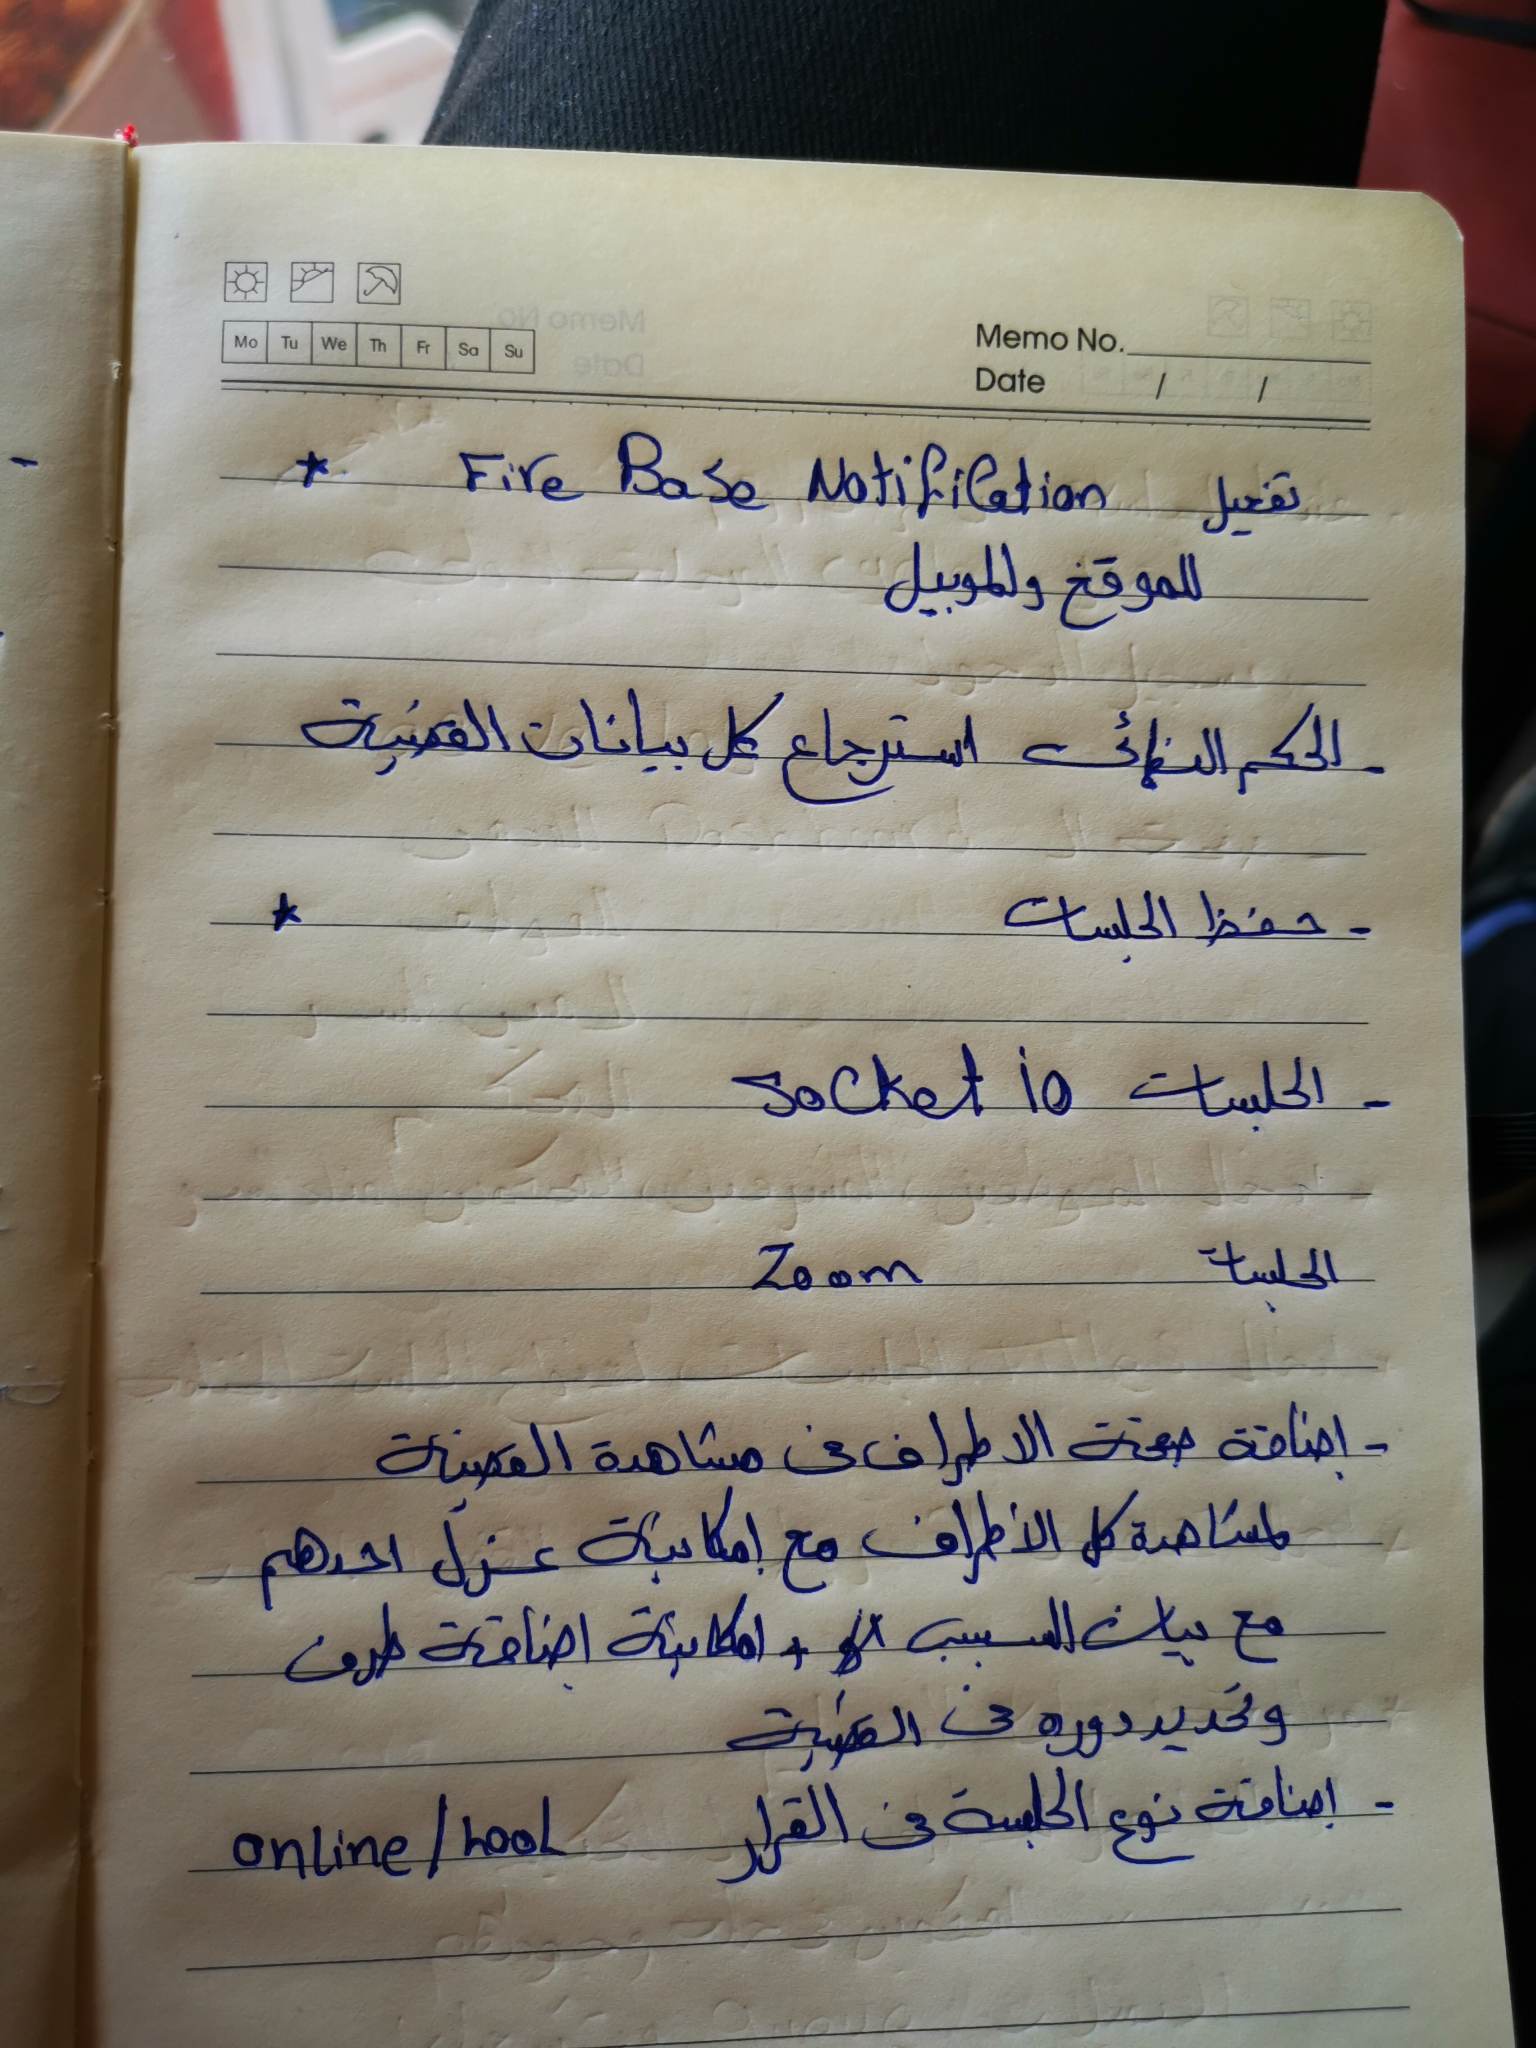 Mo Tu We Th Fr Sa Su
Memo No.
Date / /
تفعيل Fire Base Notification *
للموقع والموبيل
- الحكم النهائى استرجاع كل بيانات القضية
- حفظ الجلسات *
- الجلسات socket io
الجلسات Zoom
- اضافة صفة الاطراف فى مشاهدة القضية
لمشاهدة كل الأطراف مع إمكانية عزل احدهم
مع بيان السبب + امكانية اضافة طرف
وتحديد دوره فى القضية
- اضافة نوع الجلسة فى القرار online/